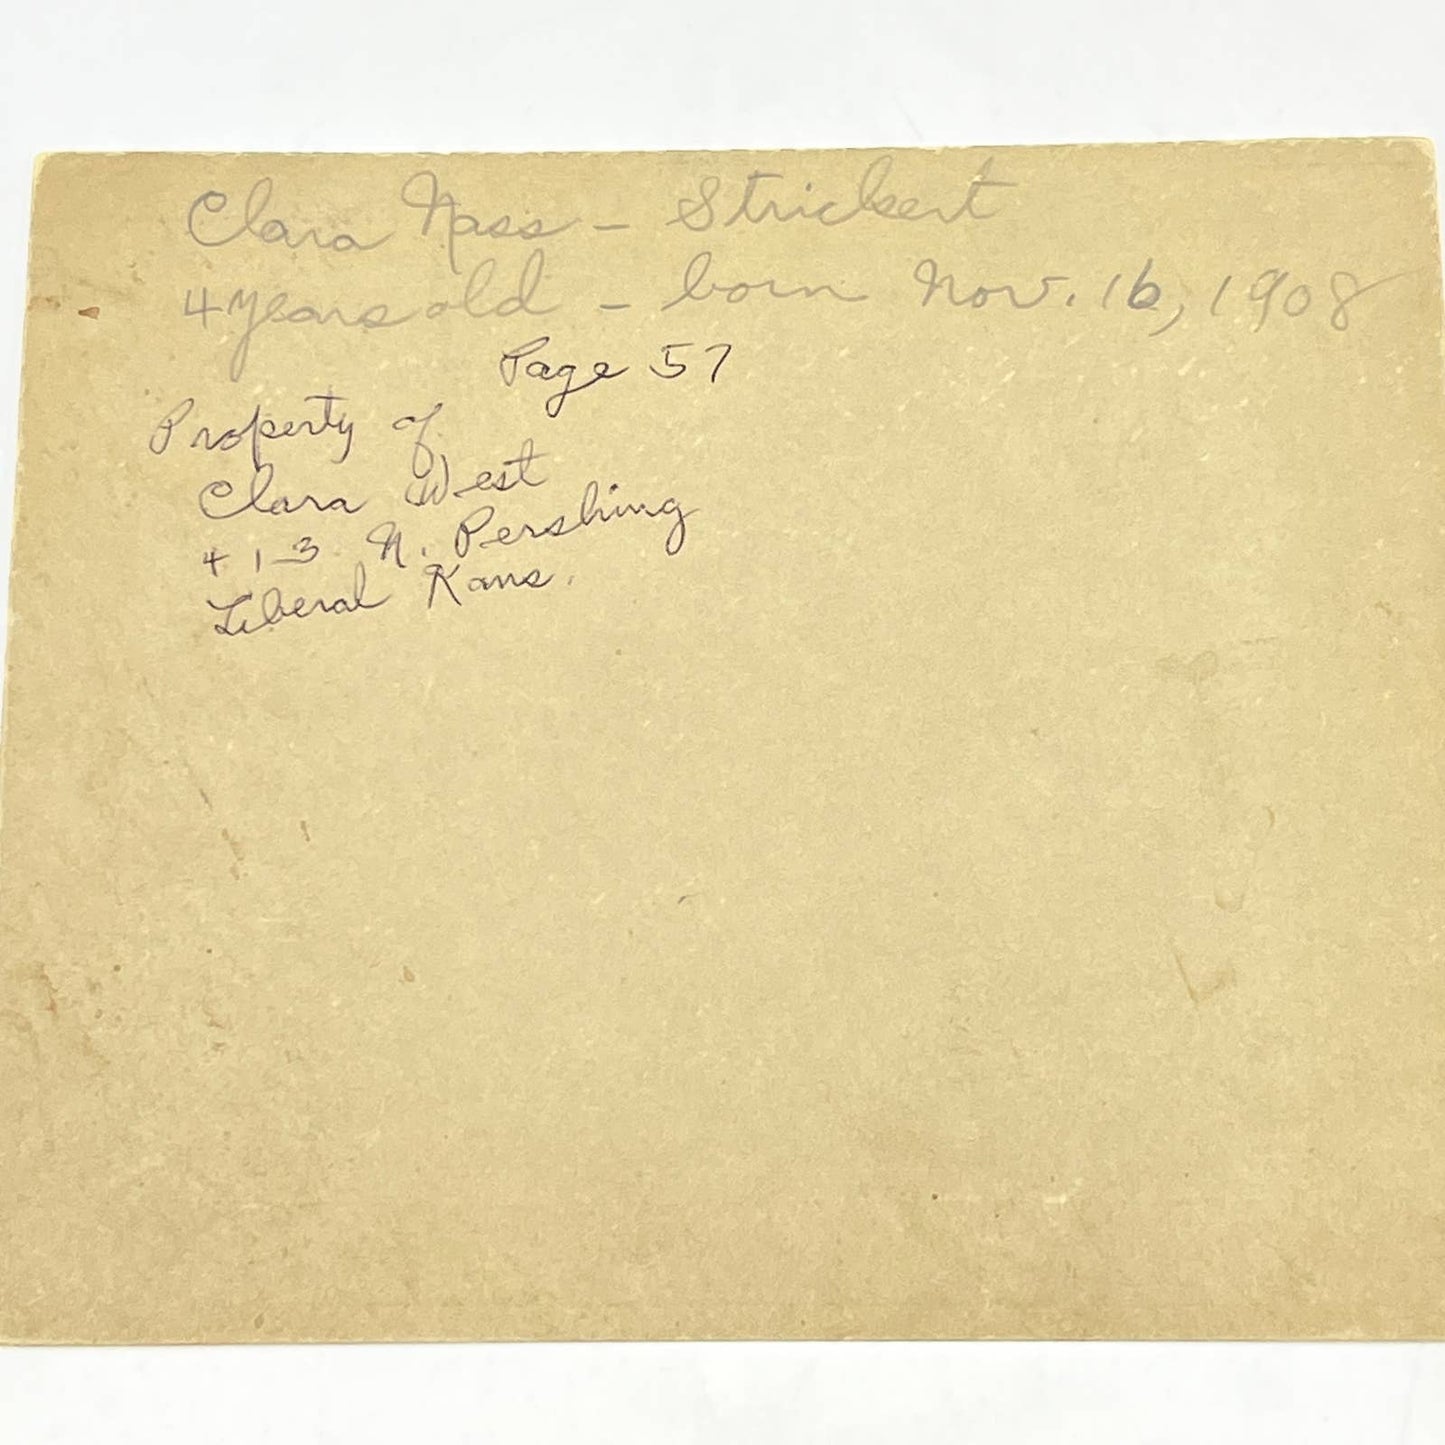 Clara Nass - Strickert
4 years old - born Nov. 16, 1908
Page 57
Property of
Clara West
413 N. Pershing
Liberal Kans.